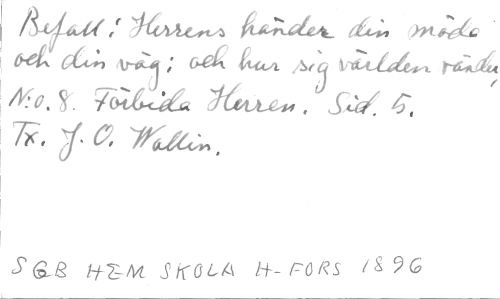 Befall i Herrens händer din möda
och din väg; och hur sig världen vänder,
N:o. 8. Förbida Herren. Sid. 5.
Tx. J. O. Wallin.
SGB HEM SKOLA H-FORS 1896